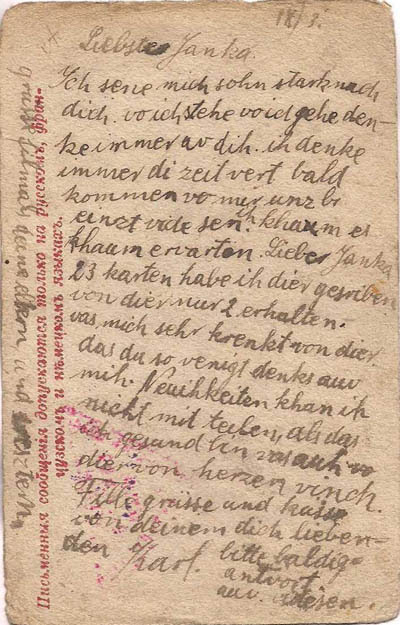 IX/3.
Liebste Janka.
Ich sene mich sohn stark nach
dich. vo ich stehe vo id gehe den-
ke immer av dih. ih denke
immer di zeit vert bald
kommen vo mir unz br
einzt vide sen. Ich khaum es
khaum ervarten. Lieber Janka
23 karten habe ih dier gesriben
von dier nur 2 erhalten.
vas mich sehr krenkt von dier
das du so venigt denks auv
mih. Neuihkeiten khan ih
nicht mit teilen, als das
ich gesund bin vas auh
dier von herzen vinch.
Fille grüsse und küsse
von deinem dich lieben-
den Karl. bitte baldig
antvort
auv. disen.
Письменныя сообщенія допускаются только на русскомъ, фран-
цузскомъ и нѣмецкомъ языкахъ.
grüsse
und